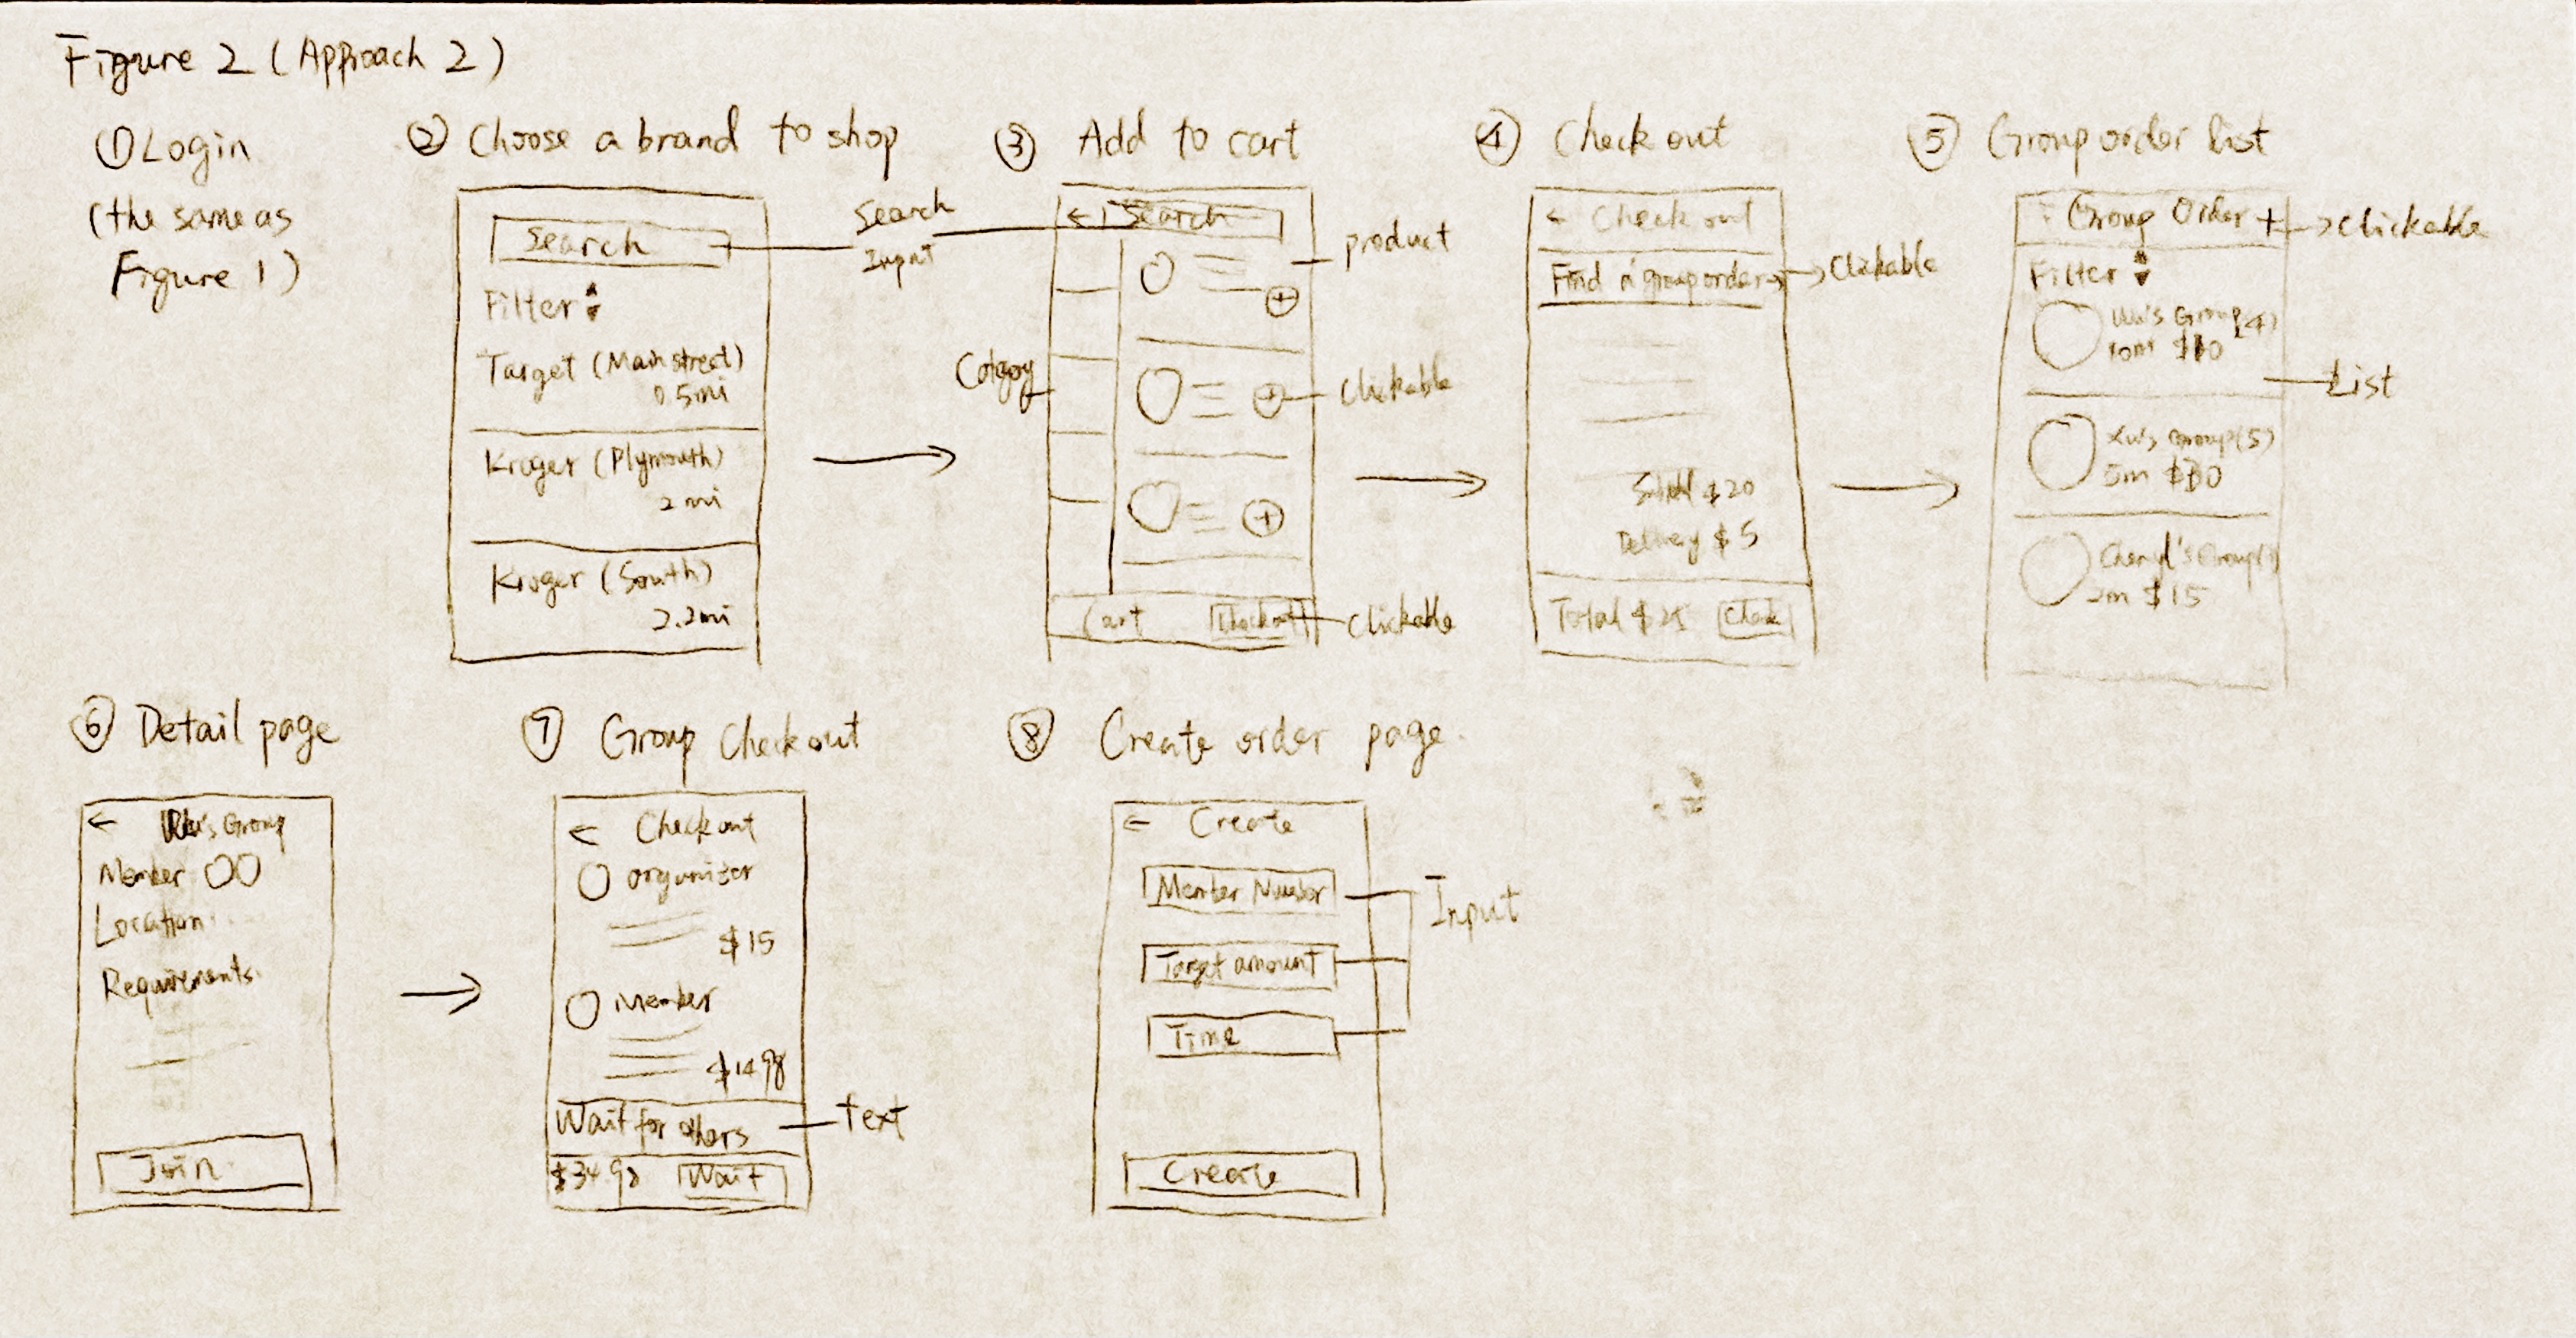 Figure 2 (Approach 2)
① Login
(the same as
Figure 1)
② Choose a brand to shop
Search
Filter
Target (Main street)
0.5mi
Kroger (Plymouth)
2 mi
Kroger (South)
2.2mi
Search
Input
③ Add to cart
← Search
product
Catgoy
Clickable
Cart Checkout
Clickable
④ Check out
← Check out
Find a group order →
Clickable
$20
Delivery $5
Total $25 Check
⑤ Group order list
Group Order +
Clickable
Filter
Group(4)
List
Xu's Group(5)
5m
Cheryl's Group
2m $15
⑥ Detail page
← Group
Member
Location
Requirements
Join
⑦ Group Checkout
← Checkout
organizer
$15
Member
$14 98
Wait for others
Text
$34 98 Wait
⑧ Create order page
← Create
Member Number
Target amount
Time
Input
Create